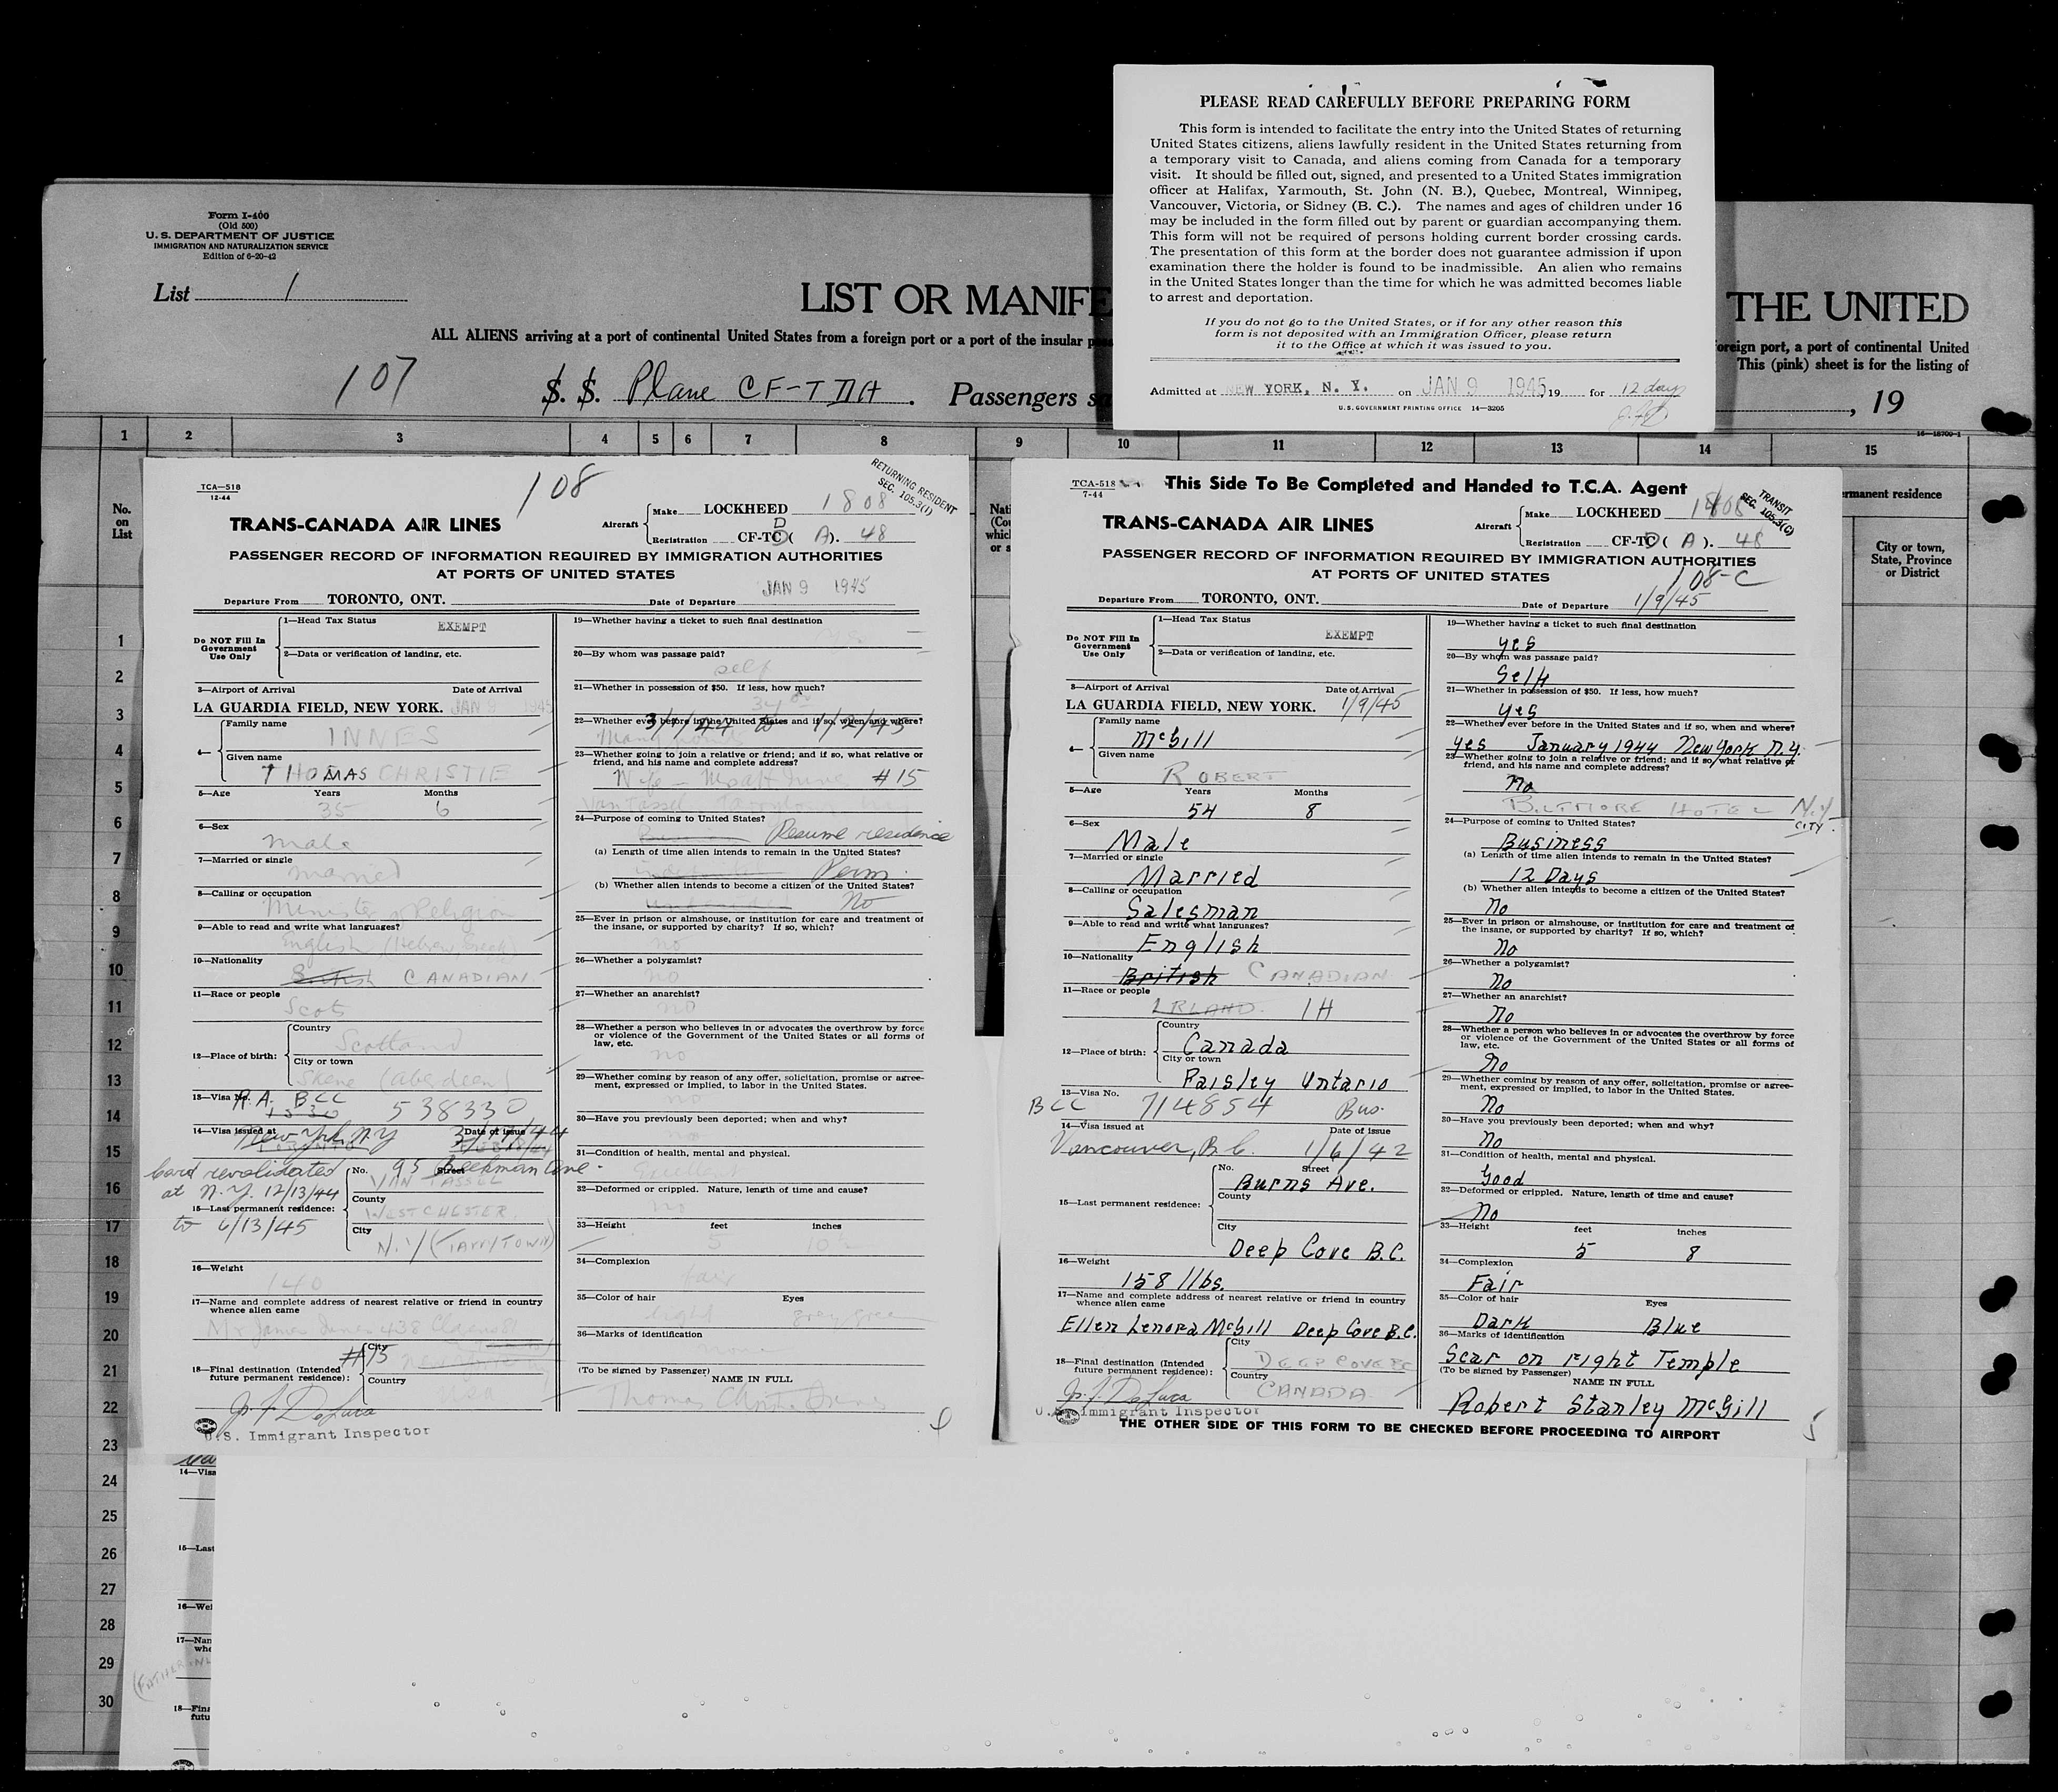 PLEASE READ CAREFULLY BEFORE PREPARING FORM
This form is intended to facilitate the entry into the United States of returning
United States citizens, aliens lawfully resident in the United States returning from
a temporary visit to Canada, and aliens coming from Canada for a temporary
visit. It should be filled out, signed, and presented to a United States immigration
officer at Halifax, Yarmouth, St. John (N. B.), Quebec, Montreal, Winnipeg,
Vancouver, Victoria, or Sidney (B. C.). The names and ages of children under 16
may be included in the form filled out by parent or guardian accompanying them.
This form will not be required of persons holding current border crossing cards.
The presentation of this form at the border does not guarantee admission if upon
examination there the holder is found to be inadmissible. An alien who remains
in the United States longer than the time for which he was admitted becomes liable
to arrest and deportation.
If you do not go to the United States, or if for any other reason this
form is not deposited with an Immigration Officer, please return
it to the Office at which it was issued to you.
Admitted at NEW YORK, N. Y. on JAN 9 1945, 19 for 12 days
U.S. GOVERNMENT PRINTING OFFICE 14—3205
Form I-400
(Old 500)
U. S. DEPARTMENT OF JUSTICE
IMMIGRATION AND NATURALIZATION SERVICE
Edition of 6-20-42
List 1
LIST OR MANIFE
THE UNITED
ALL ALIENS arriving at a port of continental United States from a foreign port or a port of the insular
foreign port, a port of continental United
This (pink) sheet is for the listing of
107 S. S. Plane CF-TDA . Passengers sa
, 19
16—18700-1
1 2 3 4 5 6 7 8 9 10 11 12 13 14 15
No.
on
List
rmanent residence
City or town,
State, Province
or District
1
2
3
4
5
6
7
8
9
10
11
12
13
14
15
16
17
18
19
20
21
22
23
24
25
26
27
28
29
30
TCA—518
12-44
108
RETURNING RESIDENT
SEC. 105.3(1)
TRANS-CANADA AIR LINES
Aircraft
Make LOCKHEED 1808
Registration CF-TC D (A). 48
PASSENGER RECORD OF INFORMATION REQUIRED BY IMMIGRATION AUTHORITIES
AT PORTS OF UNITED STATES
JAN 9 1945
Departure From TORONTO, ONT. Date of Departure
Do NOT Fill In
Government
Use Only
1—Head Tax Status
EXEMPT
2—Data or verification of landing, etc.
3—Airport of Arrival Date of Arrival
LA GUARDIA FIELD, NEW YORK. JAN 9 1945
4—
Family name
INNES
Given name
THOMAS CHRISTIE
5—Age Years Months
35 6
6—Sex
male
7—Married or single
married
8—Calling or occupation
Minister of Religion
9—Able to read and write what languages?
English (Hebrew, Greek)
10—Nationality
British CANADIAN
11—Race or people
Scots
12—Place of birth:
Country
Scotland
City or town
Skene (Aberdeen)
13—Visa No.
R.A. BCC
538330
14—Visa issued at Date of issue
New York, N.Y. 3/1/44
Card revalidated
at N.Y. 12/13/44
to 6/13/45
15—Last permanent residence:
No. Street
95 Beekman Ave.
VAN TASSEL
County
WESTCHESTER
City
N.Y. (TARRYTOWN)
16—Weight
140
17—Name and complete address of nearest relative or friend in country
whence alien came
Mr James Innes 438
#15
18—Final destination (Intended
future permanent residence):
City
Country
USA
J. F. DeLuca
U.S. Immigrant Inspector
19—Whether having a ticket to such final destination
20—By whom was passage paid?
self
21—Whether in possession of $50. If less, how much?
22—Whether ever before in the United States and if so, when and where?
3/1/44 to 1/2/45
23—Whether going to join a relative or friend; and if so, what relative or
friend, and his name and complete address?
Wife #15
Van Tassel
24—Purpose of coming to United States?
Resume residence
(a) Length of time alien intends to remain in the United States?
Perm.
(b) Whether alien intends to become a citizen of the United States?
No
25—Ever in prison or almshouse, or institution for care and treatment of
the insane, or supported by charity? If so, which?
no
26—Whether a polygamist?
no
27—Whether an anarchist?
no
28—Whether a person who believes in or advocates the overthrow by force
or violence of the Government of the United States or all forms of
law, etc.
no
29—Whether coming by reason of any offer, solicitation, promise or agree-
ment, expressed or implied, to labor in the United States.
no
30—Have you previously been deported; when and why?
no
31—Condition of health, mental and physical.
Excellent
32—Deformed or crippled. Nature, length of time and cause?
no
33—Height feet inches
5 10½
34—Complexion
fair
35—Color of hair Eyes
light grey green
36—Marks of identification
none
(To be signed by Passenger)
NAME IN FULL
Thomas Christie Innes
TCA-518
7-44
This Side To Be Completed and Handed to T.C.A. Agent
TRANSIT
SEC. 105.3(C)
TRANS-CANADA AIR LINES
Aircraft
Make LOCKHEED 1808
Registration CF-TD (A). 48
PASSENGER RECORD OF INFORMATION REQUIRED BY IMMIGRATION AUTHORITIES
AT PORTS OF UNITED STATES
108-C
Departure From TORONTO, ONT. Date of Departure 1/9/45
Do NOT Fill In
Government
Use Only
1—Head Tax Status
EXEMPT
2—Data or verification of landing, etc.
3—Airport of Arrival Date of Arrival
LA GUARDIA FIELD, NEW YORK. 1/9/45
4—
Family name
McGill
Given name
ROBERT
5—Age Years Months
54 8
6—Sex
Male
7—Married or single
Married
8—Calling or occupation
Salesman
9—Able to read and write what languages?
English
10—Nationality
British CANADIAN
11—Race or people
IRLAND. IH
12—Place of birth:
Country
Canada
City or town
Paisley Ontario
13—Visa No.
BCC 714854 Bus.
14—Visa issued at Date of issue
Vancouver, B.C. 1/6/42
15—Last permanent residence:
No. Street
Burns Ave.
County
City
Deep Cove B.C.
16—Weight
158 lbs.
17—Name and complete address of nearest relative or friend in country
whence alien came
Ellen Lenora McGill Deep Cove B.C.
18—Final destination (Intended
future permanent residence):
City
DEEP COVE BC
Country
CANADA
J. F. DeLuca
U.S. Immigrant Inspector
19—Whether having a ticket to such final destination
yes
20—By whom was passage paid?
Self
21—Whether in possession of $50. If less, how much?
yes
22—Whether ever before in the United States and if so, when and where?
yes January 1944 New York N.Y.
23—Whether going to join a relative or friend; and if so, what relative or
friend, and his name and complete address?
No
BILTMORE HOTEL N.Y.
CITY.
24—Purpose of coming to United States?
Business
(a) Length of time alien intends to remain in the United States?
12 Days
(b) Whether alien intends to become a citizen of the United States?
No
25—Ever in prison or almshouse, or institution for care and treatment of
the insane, or supported by charity? If so, which?
No
26—Whether a polygamist?
No
27—Whether an anarchist?
No
28—Whether a person who believes in or advocates the overthrow by force
or violence of the Government of the United States or all forms of
law, etc.
No
29—Whether coming by reason of any offer, solicitation, promise or agree-
ment, expressed or implied, to labor in the United States.
No
30—Have you previously been deported; when and why?
No
31—Condition of health, mental and physical.
Good
32—Deformed or crippled. Nature, length of time and cause?
No
33—Height feet inches
5 8
34—Complexion
Fair
35—Color of hair Eyes
Dark Blue
36—Marks of identification
Scar on right Temple
(To be signed by Passenger)
NAME IN FULL
Robert Stanley McGill
THE OTHER SIDE OF THIS FORM TO BE CHECKED BEFORE PROCEEDING TO AIRPORT
14—Visa
15—Last
16—Wei
17—Nan
whe
(FATHER
18—Fina
futu